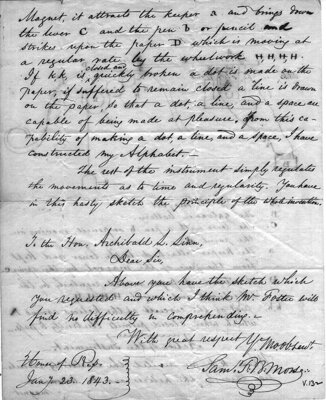 Magnet, it attracts the keeper a and brings down
the lever C and the pen B or pencil and
strikes upon the paper D which is moving at
a regular rate by the wheelwork H,H,H,H.
closed and
If kk. is quickly broken a dot is made on the
paper, if suffered to remain closed a line is drawn
on the paper, so that a dot, a line, and a space are
capable of being made at pleasure, from this ca-
pability of making a dot a line, and a space, I have
constructed my Alphabet.—
The rest of the instrument simply regulates
the movements as to time and regularity. You have
in this hasty sketch the principle of the whole invention.
To the Hon. Archibald L. Linn,
Dear Sir,
Above you have the sketch which
you requested and which I think Mr. Foster will
find no difficulty in comprehending.—
With great respect Yr Mo ob servt
House of Reps. Saml. F. B. Morse.
Jany 23. 1843.